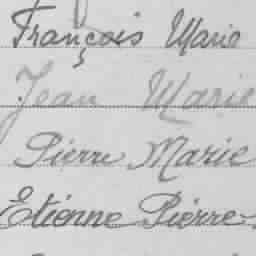 François Marie
Jean Marie
Pierre Marie
Etienne Pierre